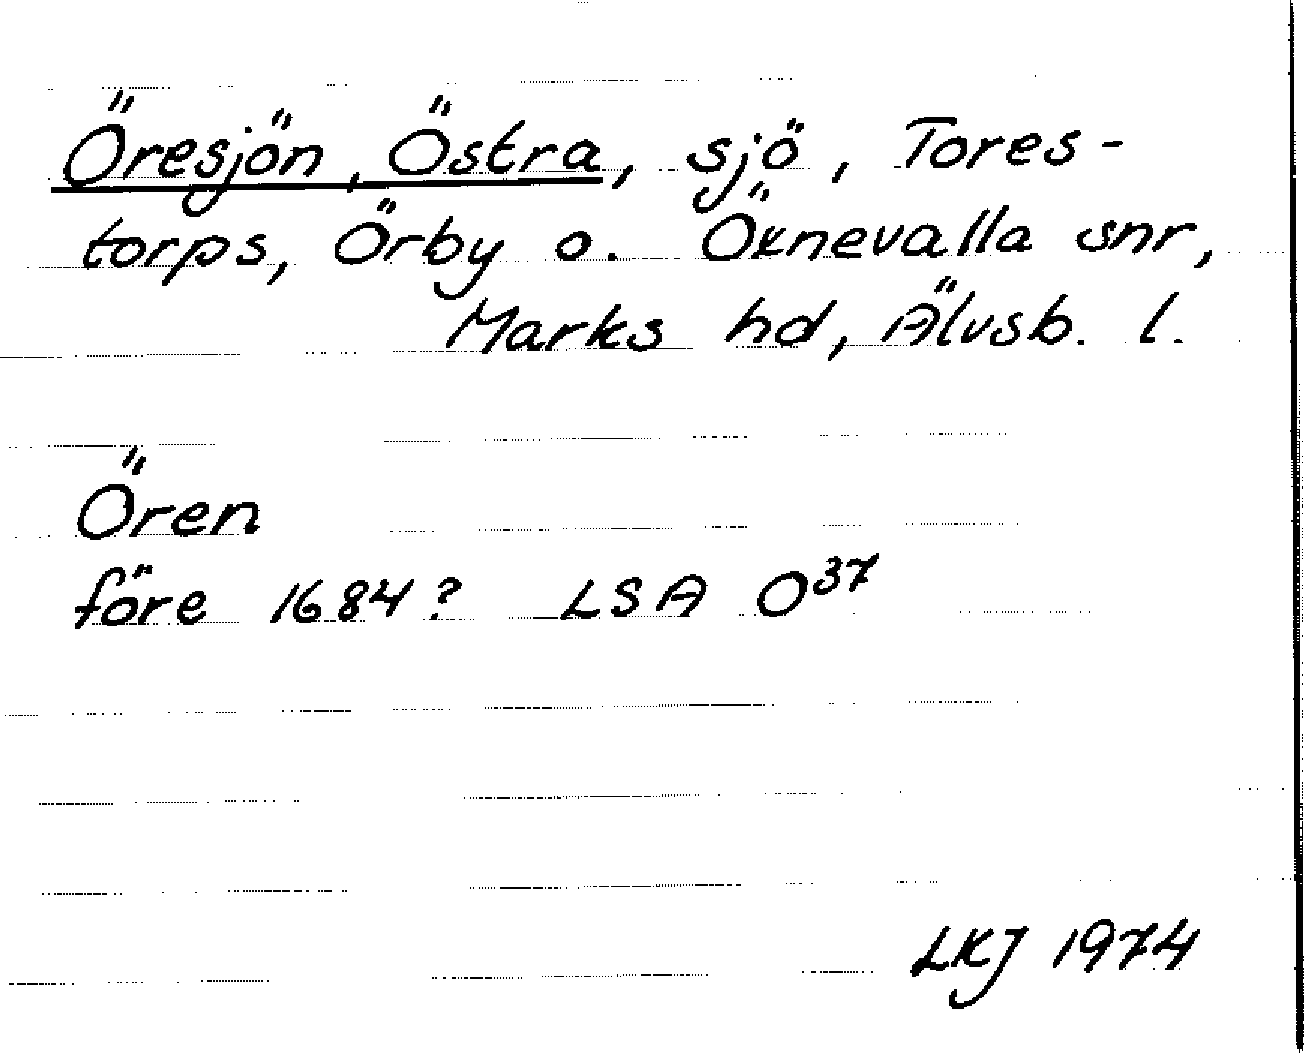 Öresjön, Östra, sjö, Tores-
torps, Örby o. Öxnevalla snr,
Marks hd, Älvsb. l.
Ören
före 1684? LSA O³⁷
LKJ 1974